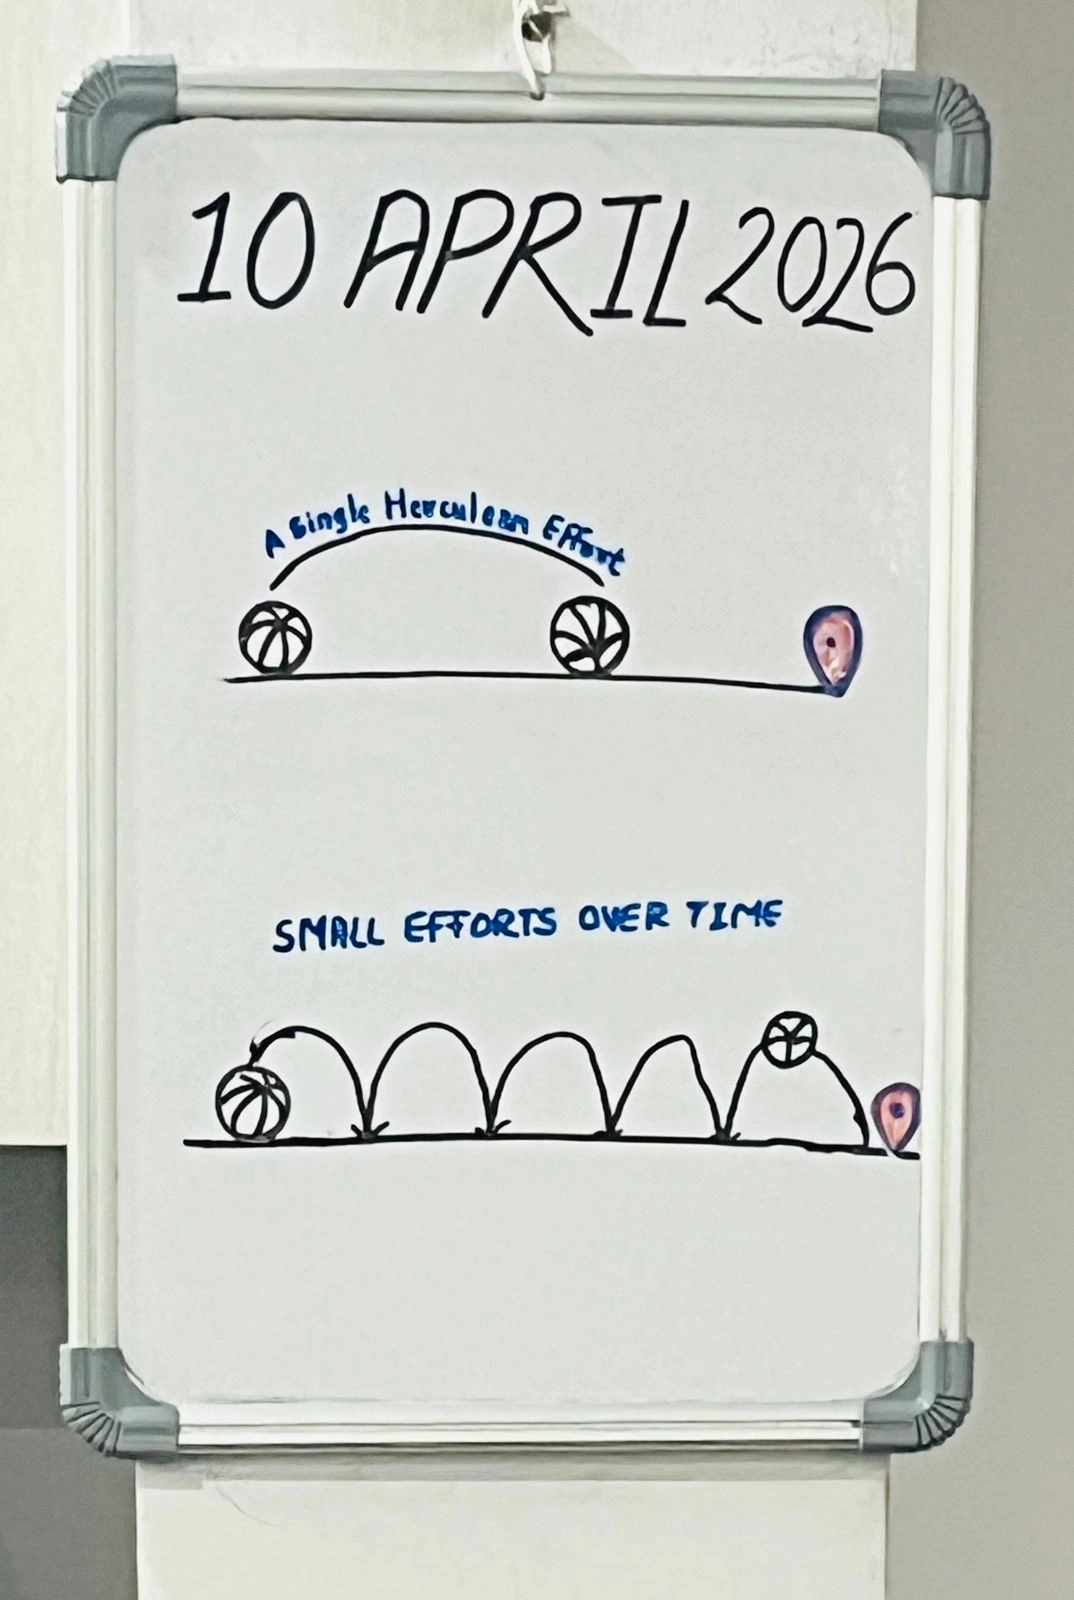 10 APRIL 2026
A Single Herculean Effort
SMALL EFFORTS OVER TIME